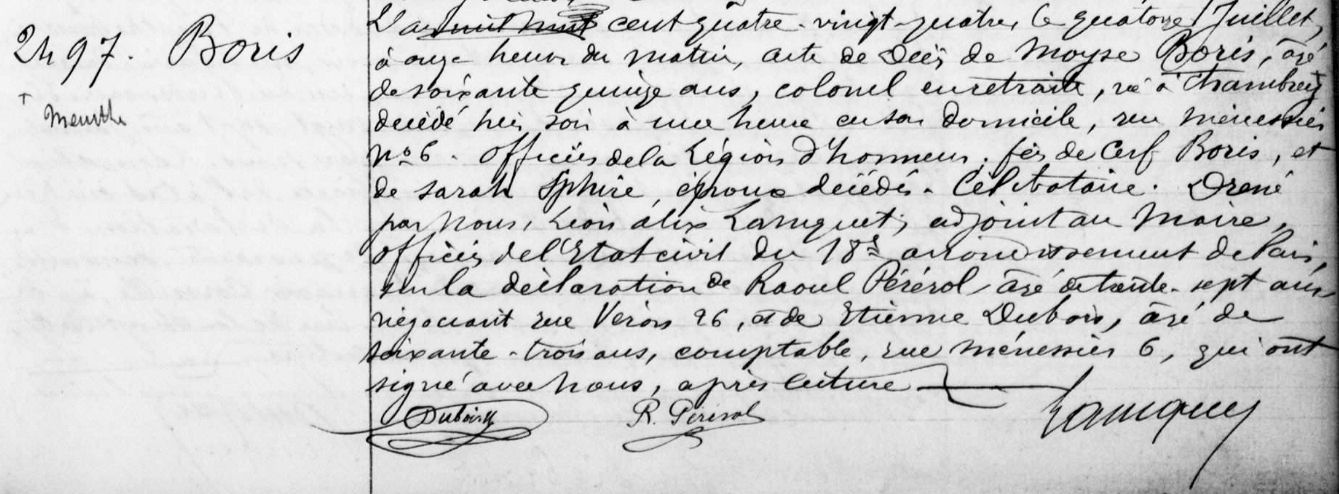 2497. Boris
Meurthe
L'an mil huit cent quatre-vingt-quatre, le quatorze Juillet,
à onze heures du matin, acte de décès de Moyse Boris, âgé
de soixante quinze ans, colonel en retraite, né à Chambrey
décédé hier soir à une heure en son domicile, rue Ménessier
No 6. Officier de la Légion d'honneur. fils de Cerf Boris, et
de Sarah Sphire, époux décédés. Célibataire. Dressé
par nous, Léon Alix Languet, adjoint au Maire,
officier de l'Etat civil du 18e arrondissement de Paris,
sur la déclaration de Raoul Pérérol, âgé de trente-sept ans
négociant rue Véron 26, et de Etienne Dubois, âgé de
soixante-trois ans, comptable, rue Ménessier 6, qui ont
signé avec nous, après lecture
Dubois R. Pérérol Languet